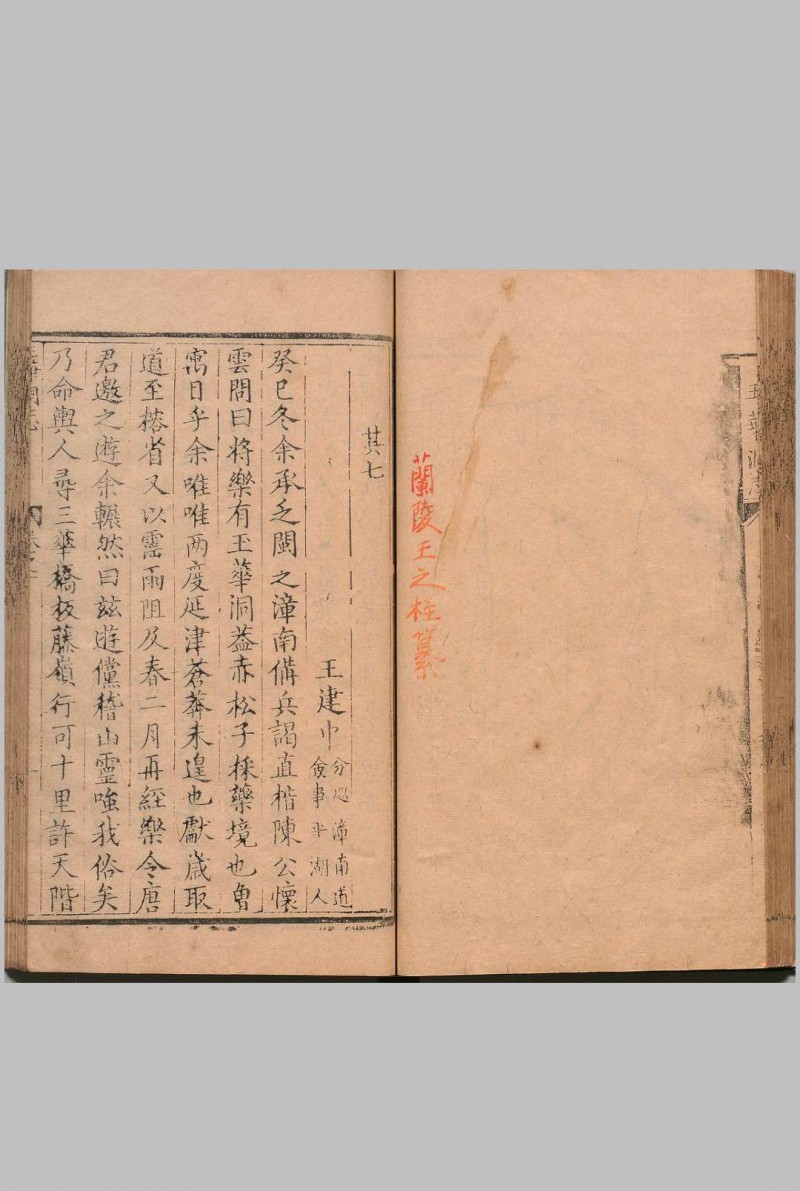 玉華洞志
蘭陵王之柱纂
其七
王建中 分巡漳南道僉事平湖人
癸巳冬余承乏閩之漳南備兵謁直楷陳公懷
雲問曰將樂有玉華洞益赤松子採藥境也曾
寓目乎余唯唯两度延津蒼莽未遑也獻歲取
道至榕省又以霪雨阻及春二月再經樂令唐
君邀之遊余囅然曰兹遊儻稽山靈嗤我俗矣
乃命輿人尋三華橋板藤嶺行可十里許天階